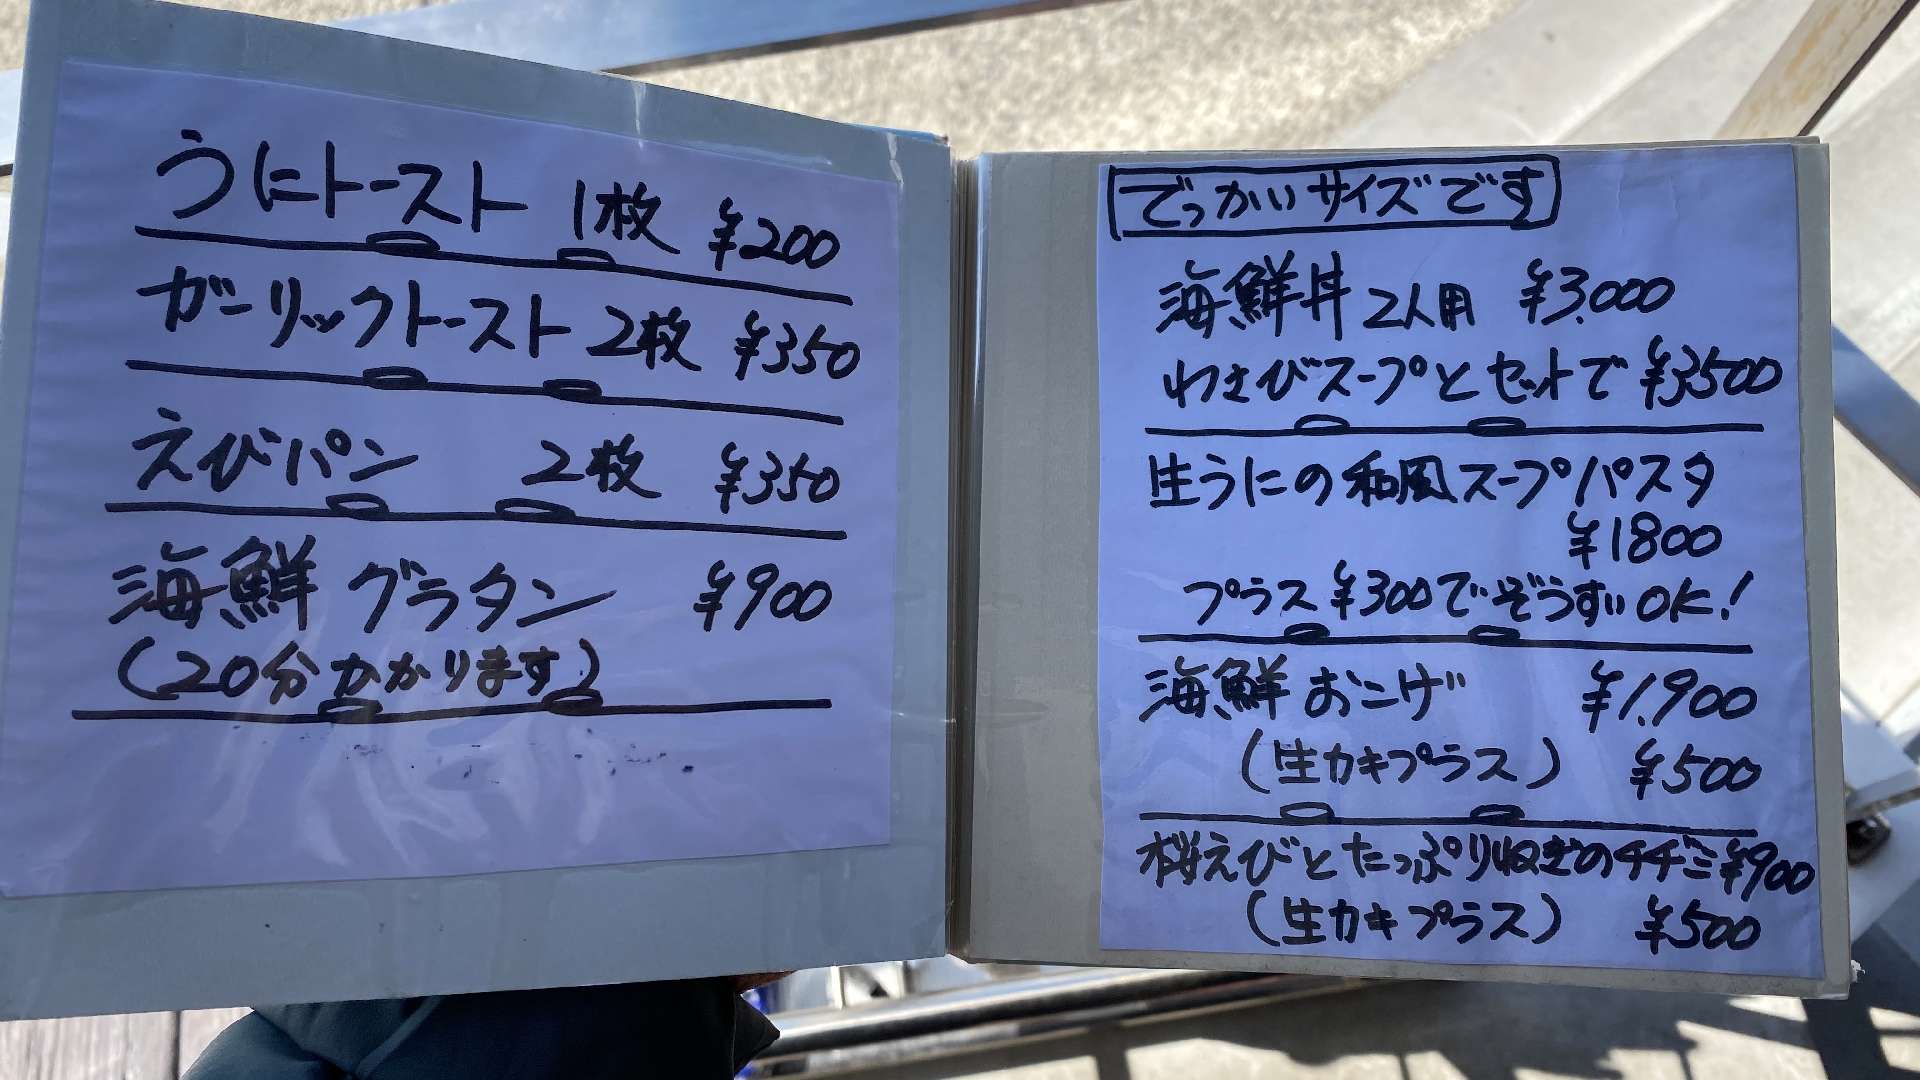 うにトースト 1枚 ¥200
ガーリックトースト 2枚 ¥350
えびパン 2枚 ¥350
海鮮グラタン ¥900
(20分かかります)
でっかいサイズです
海鮮丼 2人用 ¥3.000
わさびスープとセットで ¥3500
生うにの和風スープパスタ
¥1800
プラス ¥300でぞうすいOK!
海鮮おこげ ¥1.900
(生カキプラス) ¥500
桜えびとたっぷりねぎのチヂミ ¥900
(生カキプラス) ¥500